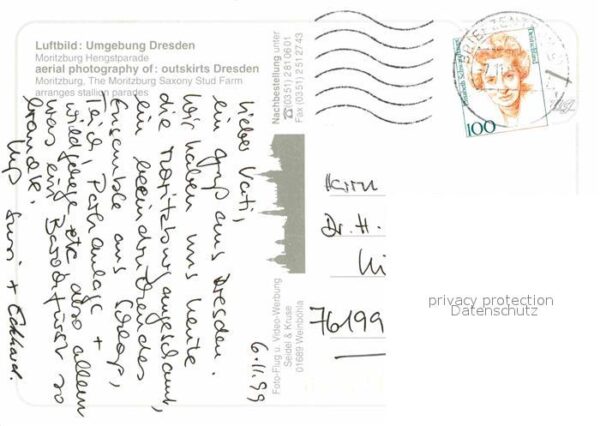 Luftbild: Umgebung Dresden
Moritzburg Hengstparade
aerial photography of: outskirts Dresden
Moritzburg, The Moritzburg Saxony Stud Farm
arranges stallion parades
Nachbestellung unter
☎ (03 51) 2 81 06 01
Fax (03 51) 2 51 27 43
Foto-Flug u. Video-Werbung
Seidel & Kruse
01689 Weinböhla
6.11.99
Lieber Vati,
ein Gruß aus Dresden.
Wir haben uns heute
die Moritzburg angeschaut,
ein beeindruckendes
Ensemble aus Schloß,
Teich, Parkanlage +
Wildgehege, etc also allem
was ein Barockfürst so
brauchte.
Kuß Susi + Eckhard.
BRIEFZENTRUM
Deutschland
100
Herrn
Dr. H.
76199
privacy protection
Datenschutz